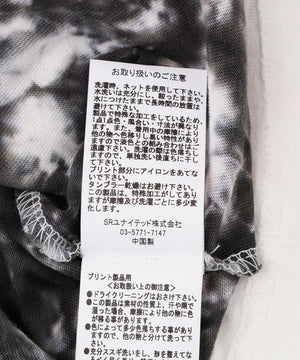 お取り扱いのご注意
洗濯時、ネットを使用して下さい。
水洗いは充分にし、絞ったままや、
水につけたままで長時間の放置は
お避け下さい。
製品で特殊な加工をしているため、
1点1点色・風合い・寸法が異なり
ます。また、着用中の摩擦により
他の物へ色移りし易い特性が有り
ますので淡色との組み合わせはご
遠慮下さい。洗濯の際は色落ちし
ますので、単独洗い後直ちに干し
て下さい。
プリント部分にアイロンをあてな
いで下さい。
タンブラー乾燥はお避け下さい。
この製品は、特殊加工がしてあり
ますが摩擦及び洗濯ごとに多少変
化します。
SRユナイテッド株式会社
03-5771-7147
中国製
プリント製品用
<お取扱い上のご注意>
●ドライクリーニングはお避け下さい。
●この製品は素材の性質上、汗や雨で
湿った場合、摩擦により他の物に色
が移る事が有ります。
●色によって多少色落ちする事が有り
ますので、他の物と分け洗って下さ
い。
●充分ススギ洗いをし、形を整えて